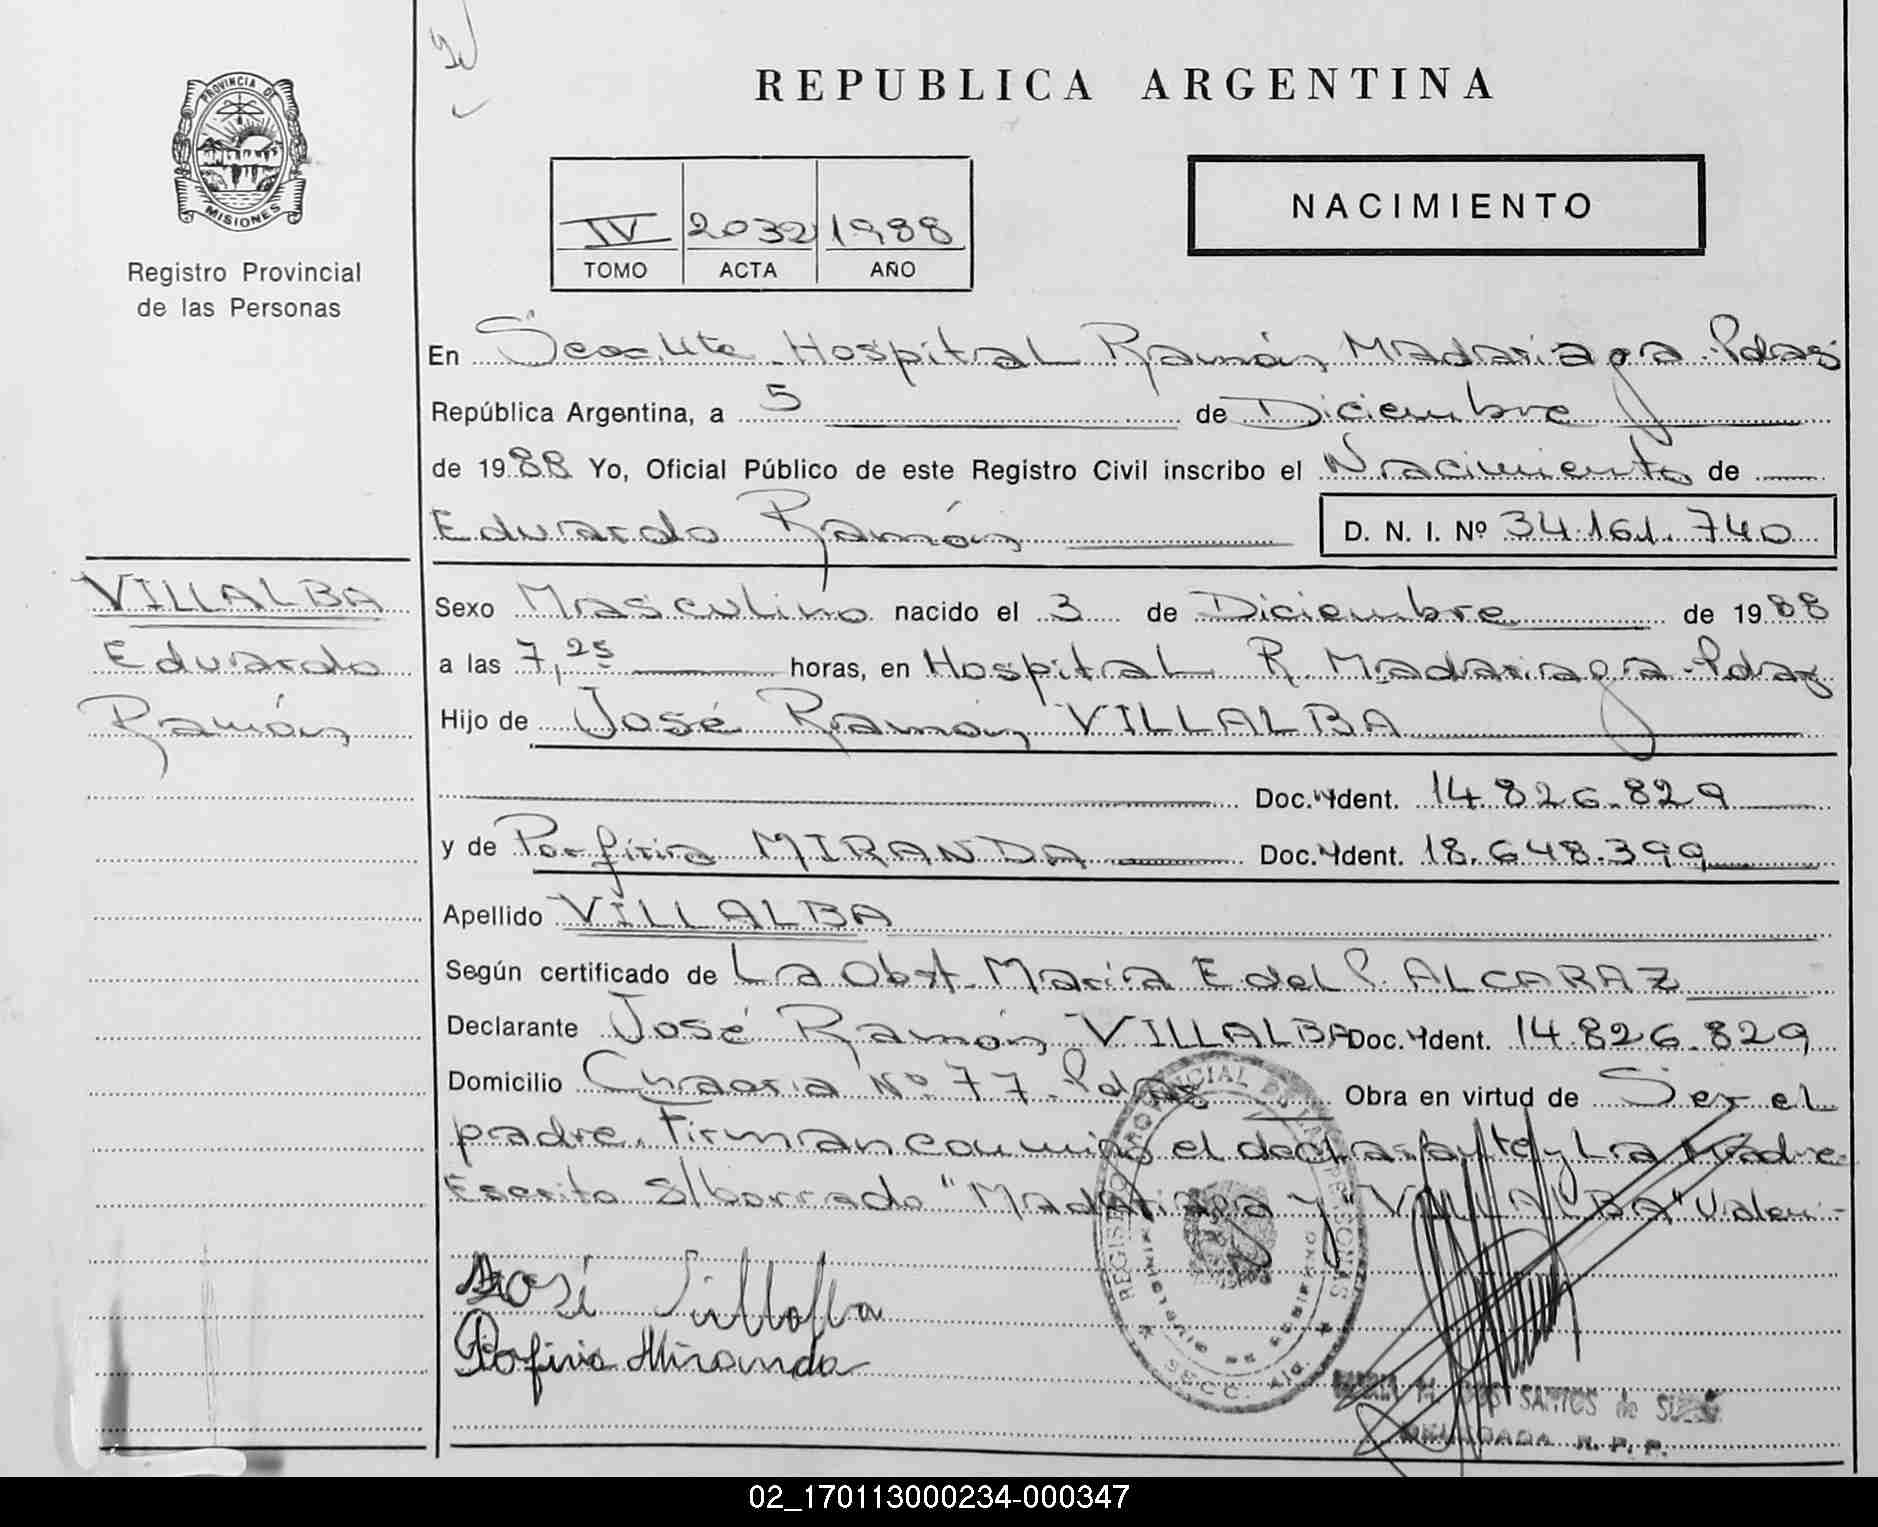 PROVINCIA DE
MISIONES
Registro Provincial
de las Personas
VILLALBA
Eduardo
Ramón
REPUBLICA ARGENTINA
NACIMIENTO
IV 2032 1988
TOMO ACTA AÑO
En Hospital Ramón Madariaga-Pdas
República Argentina, a 5 de Diciembre
de 1988 Yo, Oficial Público de este Registro Civil inscribo el Nacimiento de
Eduardo Ramón D. N. I. Nº 34.161.740
Sexo Masculino nacido el 3 de Diciembre de 1988
a las 7,25 horas, en Hospital R. Madariaga-Pdas
Hijo de José Ramón VILLALBA
Doc. Ydent. 14.826.829
y de Porfiria MIRANDA Doc. Ydent. 18.648.399
Apellido VILLALBA
Según certificado de La Obst. María E del P. ALCARAZ
Declarante José Ramón VILLALBA Doc. Ydent. 14.826.829
Domicilio Nº 77-Pdas Obra en virtud de Ser el
padre. Firman conmigo el declarante y La Madre-
Escrito s/borrado "Madariaga y VILLALBA" Valen.-
José Villalba
Pofiria Miranda
REGISTRO PROVINCIAL DE LAS PERSONAS
SECC.
DOS SANTOS de
DELEGADA R. P. P.
02_170113000234-000347